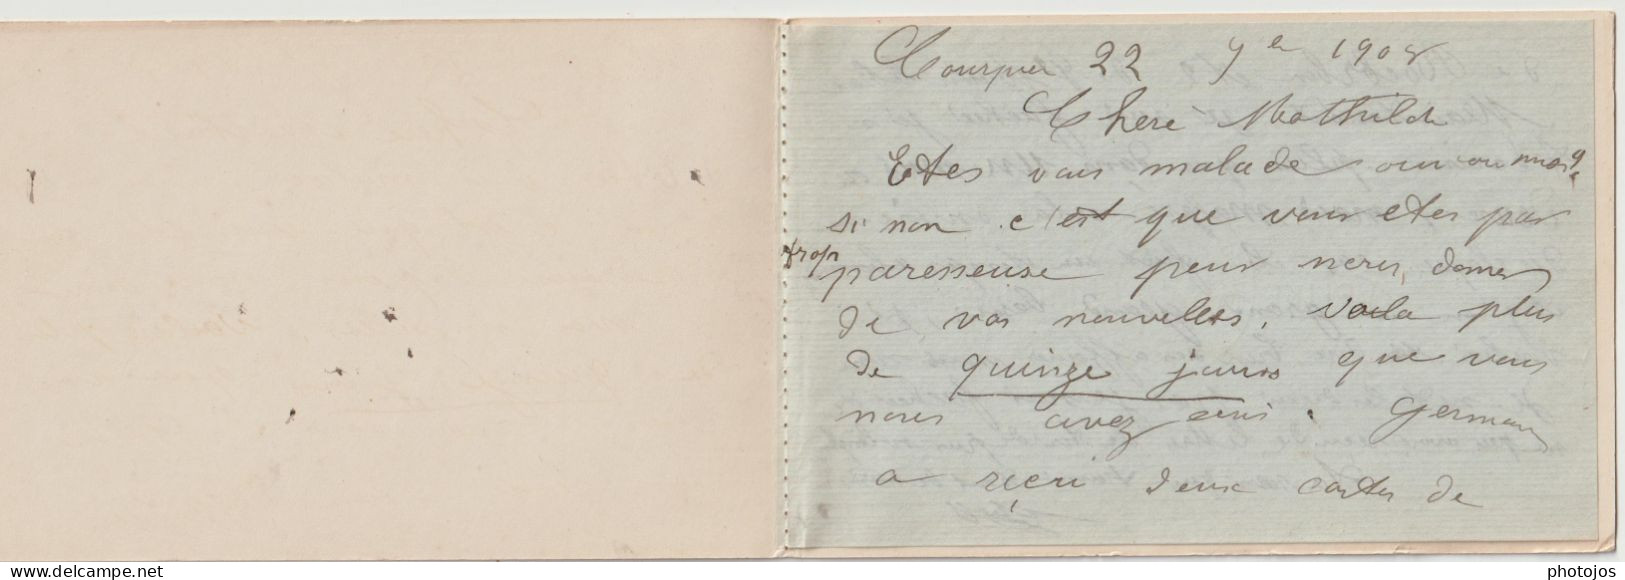 Courpière 22 9bre 1908
Chère Mathilde
Etes vous malade ou non?
si non c'est que vous etes par
trop
paresseuse pour nous donner
de vos nouvelles. Voila plus
de quinze jours que vous
nous avez ecris. Germain
a reçu deux cartes de
www.delcampe.net
photojos